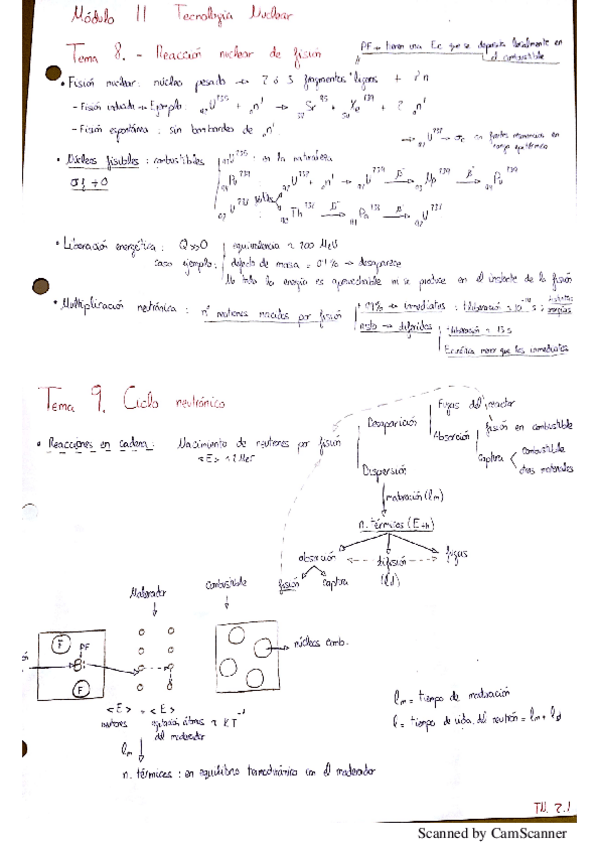 Módulo II Tecnología Nuclear
Tema 8. - Reacción nuclear de fisión
PF → tienen una Ec que se deposita localmente en
el combustible
• Fisión nuclear: núcleo pesado → 2 ó 3 fragmentos ligeros + ¹n
- Fisión inducida → Ejemplo: ₉₂U²³⁵ + ₀n¹ → ₃₈Sr⁹⁵ + ₅₄Xe¹³⁹ + 2 ₀n¹
- Fisión espontánea: sin bombardeo de ₀n¹
en fuertes resonancias en
rango epitérmico
• Núcleos fisibles: combustibles
₉₂U²³⁵: en la naturaleza
σf ≠ 0
₉₄Pu²³⁹
₉₂U²³⁸ + ₀n¹ → ₉₂U²³⁹ →β⁻ ₉₃Np²³⁹ →β⁻ ₉₄Pu²³⁹
₉₂U²³³
₉₀Th →β⁻ ₉₁Pa →β⁻ ₉₂U²³³
• Liberación energética: Q>>0
equivalencia ≈ 200 MeV
caso ejemplo:
defecto de masa ≈ 0'1% → desaparece
No toda la energía es aprovechable ni se produce en el instante de la fisión
• Multiplicación neutrónica: nº neutrones nacidos por fisión
99% → inmediatos: tliberación
distintas
energías
resto → diferidos
tliberación
Ecinética menor que los inmediatos
Tema 9. Ciclo neutrónico
• Reacciones en cadena: Nacimiento de neutrones por fisión
<E> ≈ 2 MeV
Desaparición
Fugas del reactor
Absorción
fisión en combustible
captura
combustible
otros materiales
Dispersión
moderación (lm)
n. térmicos (Eth)
absorción
difusión
(ld)
fugas
fisión
captura
Moderador
Combustible
F
PF
F
núcleos comb.
<E> = <E>
neutrones
agitación átomos ≈ KT
del moderador
lm
n. térmicos: en equilibrio termodinámico con el moderador
lm = tiempo de moderación
l = tiempo de vida del neutrón = lm + ld
TN. 2.1
Scanned by CamScanner